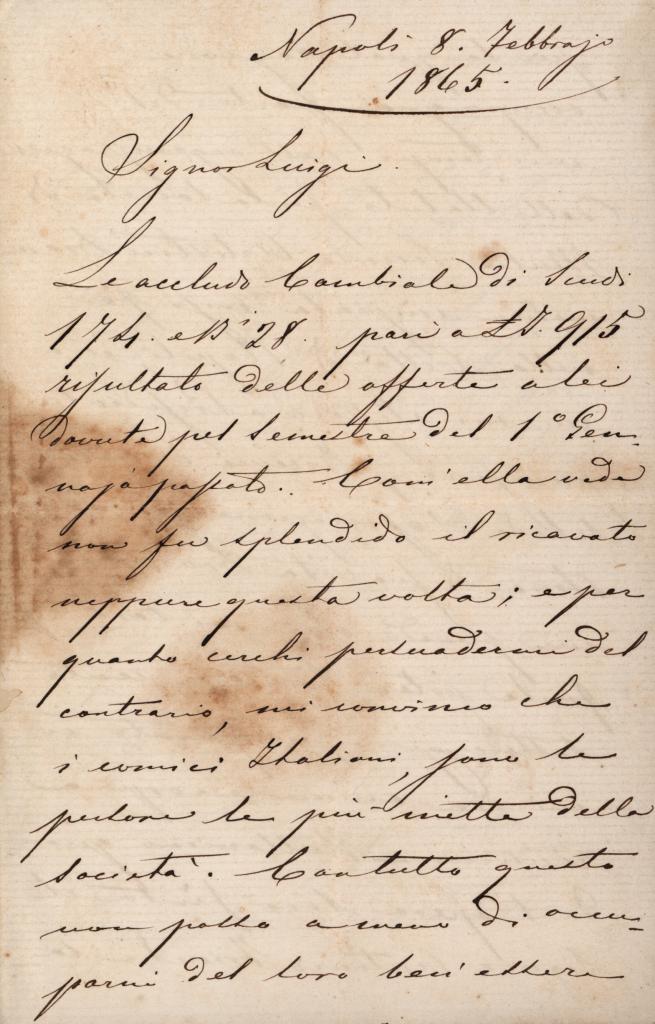 Napoli 8. Febbrajo
1865.
Signor Luigi.
Le accludo Cambiale di Scudi
174. e B.i 28. pari a £I. 915
risultato delle offerte a lei
dovute pel semestre del 1° Gen-
najo passato. Com' ella vede
non fu splendido il ricavato
neppure questa volta; e per
quanto cerchi persuadermi del
contrario, mi convinco che
i comici Italiani, sono le
persone le più inette della
società. Con tutto questo
non posso a meno di occu-
parmi del loro ben' essere